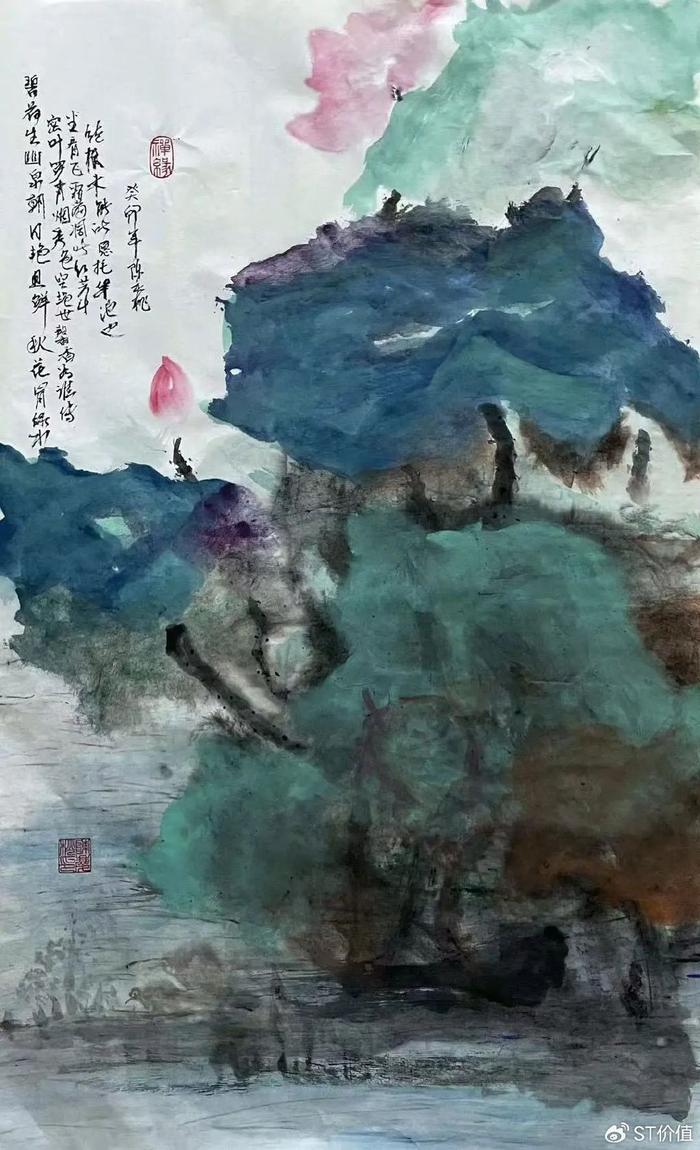 碧荷生幽泉朝日艳且鲜秋花冒绿水
密叶罗青烟秀色空绝世馨香为谁传
坐看飞霜满凋此红芳年
结根未得所愿托华池边
癸卯年陈
禪緣
ST价值